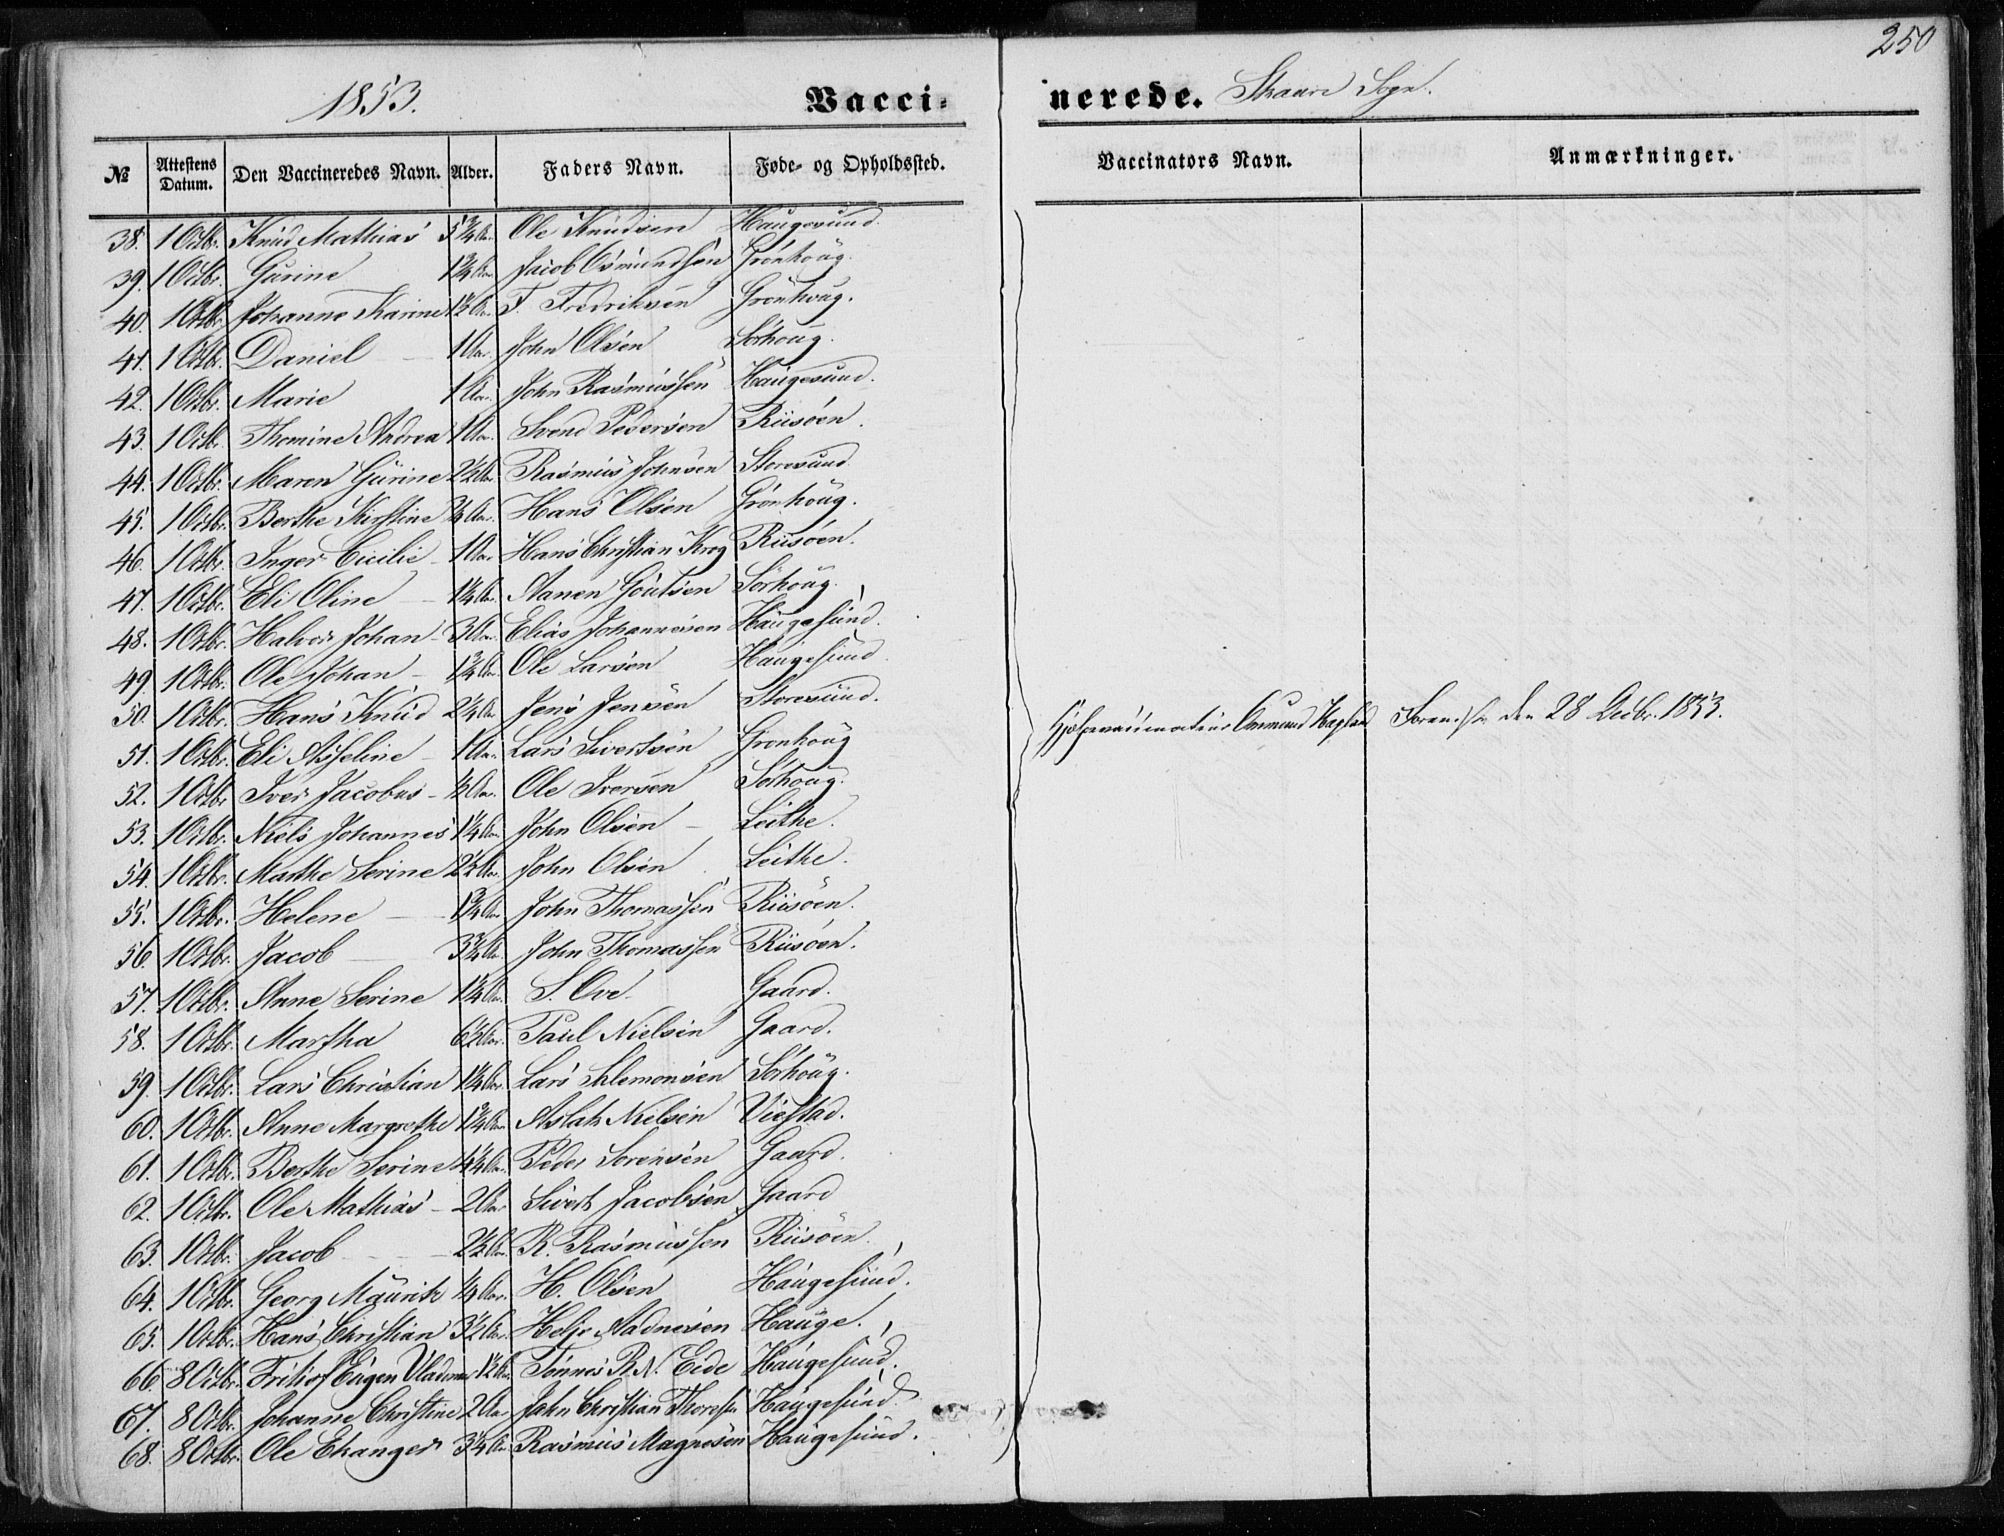 250
1853. Vacci- nerede. Skaare Sogn.
№ Attestens Datum. Den Vaccineredes Navn. Alder. Faders Navn. Føde- og Opholdssted. Vaccinators Navn. Anmærkninger.
38. 1 Octbr. Knud Mathias 5¾ Aar. Ole Knudsen Haugesund.
39. 1 Octbr. Gurine 1¾ Aar. Jacob Osmundsen Grönhoug.
40. 1 Octbr. Johanne Karine 1½ Aar. T. Fredriksen Grönhoug.
41. 1 Octbr. Daniel 1 Aar. John Olsen Sörhoug.
42. 1 Octbr. Marie 1 Aar. John Rasmussen Haugesund.
43. 1 Octbr. Thomine Andrea 1 Aar. Svend Pedersen Riisöen.
44. 1 Octbr. Maren Gurine 2½ Aar. Rasmus Johnsen Storesund
45. 1 Octbr. Berthe Kirstine ¾ Aar. Hans Olsen Grönhoug.
46. 1 Octbr. Inger Cicilie 1 Aar. Hans Christian Krog Riisöen.
47. 1 Octbr. Eli Oline 1¼ Aar. Aanen Goutsen Sörhoug.
48. 1 Octbr. Halvor Johan 3 Aar. Elias Johannesen Haugesund.
49. 1 Octbr. Ole Johan 1¾ Aar Ole Larsen Haugesund
50. 1 Octbr. Hans Knud 2¼ Aar Jens Jensen Storesund.
51. 1 Octbr. Eli Asseline 1 Aar. Lars Sivertsen Grönhoug
52. 1 Octbr. Iver Jacobus ½ Aar. Ole Iversen Sörhoug.
Hjelpevaccinateur Aamund Hagland Foran. den 28 Decbr. 1853.
53. 1 Octbr. Niels Johannes 1¼ Aar. John Olsen Leithe.
54. 1 Octbr. Marthe Serine 2½ Aar. John Olsen Leithe.
55. 1 Octbr. Helene 1¾ Aar John Thomassen Riisöen.
56. 1 Octbr. Jacob 3¾ Aar. John Thomassen Riisöen.
57. 1 Octbr. Anne Serine 1¼ Aar. S. Ove. Gaard.
58. 1 Octbr. Martha 6½ Aar. Paul Nielsen Gaard.
59. 1 Octbr. Lars Christian 1¼ Aar. Lars Salemonsen Sörhoug.
60. 1 Octbr. Anne Margrethe 1¾ Aar Aslak Nielsen Viestad.
61. 1 Octbr. Berthe Serine 4¼ Aar. Peder Sörensen Gaard.
62. 1 Octbr. Ole Mathias 2 Aar Sivert Jacobsen Gaard
63. 1 Octbr. Jacob 2½ Aar. R. Rasmussen Riisöen.
64. 1 Octbr. Georg Mauritz ¼ Aar. H. Olsen Haugesund.
65. 1 Octbr. Hans Christian 3½ Aar. Helje Aadnesen Hauge.
66. 8 Octbr. Fritiof Eugen Vladimar 1½ Aar. Tönnes R. N. Eide Haugesund.
67. 8 Octbr. Johanne Christine 2 Aar Jahn Christian Thoresen Haugesund.
68. 8 Octbr. Ole Ehanger 3¼ Aar. Rasmus Magnesen Haugesund.